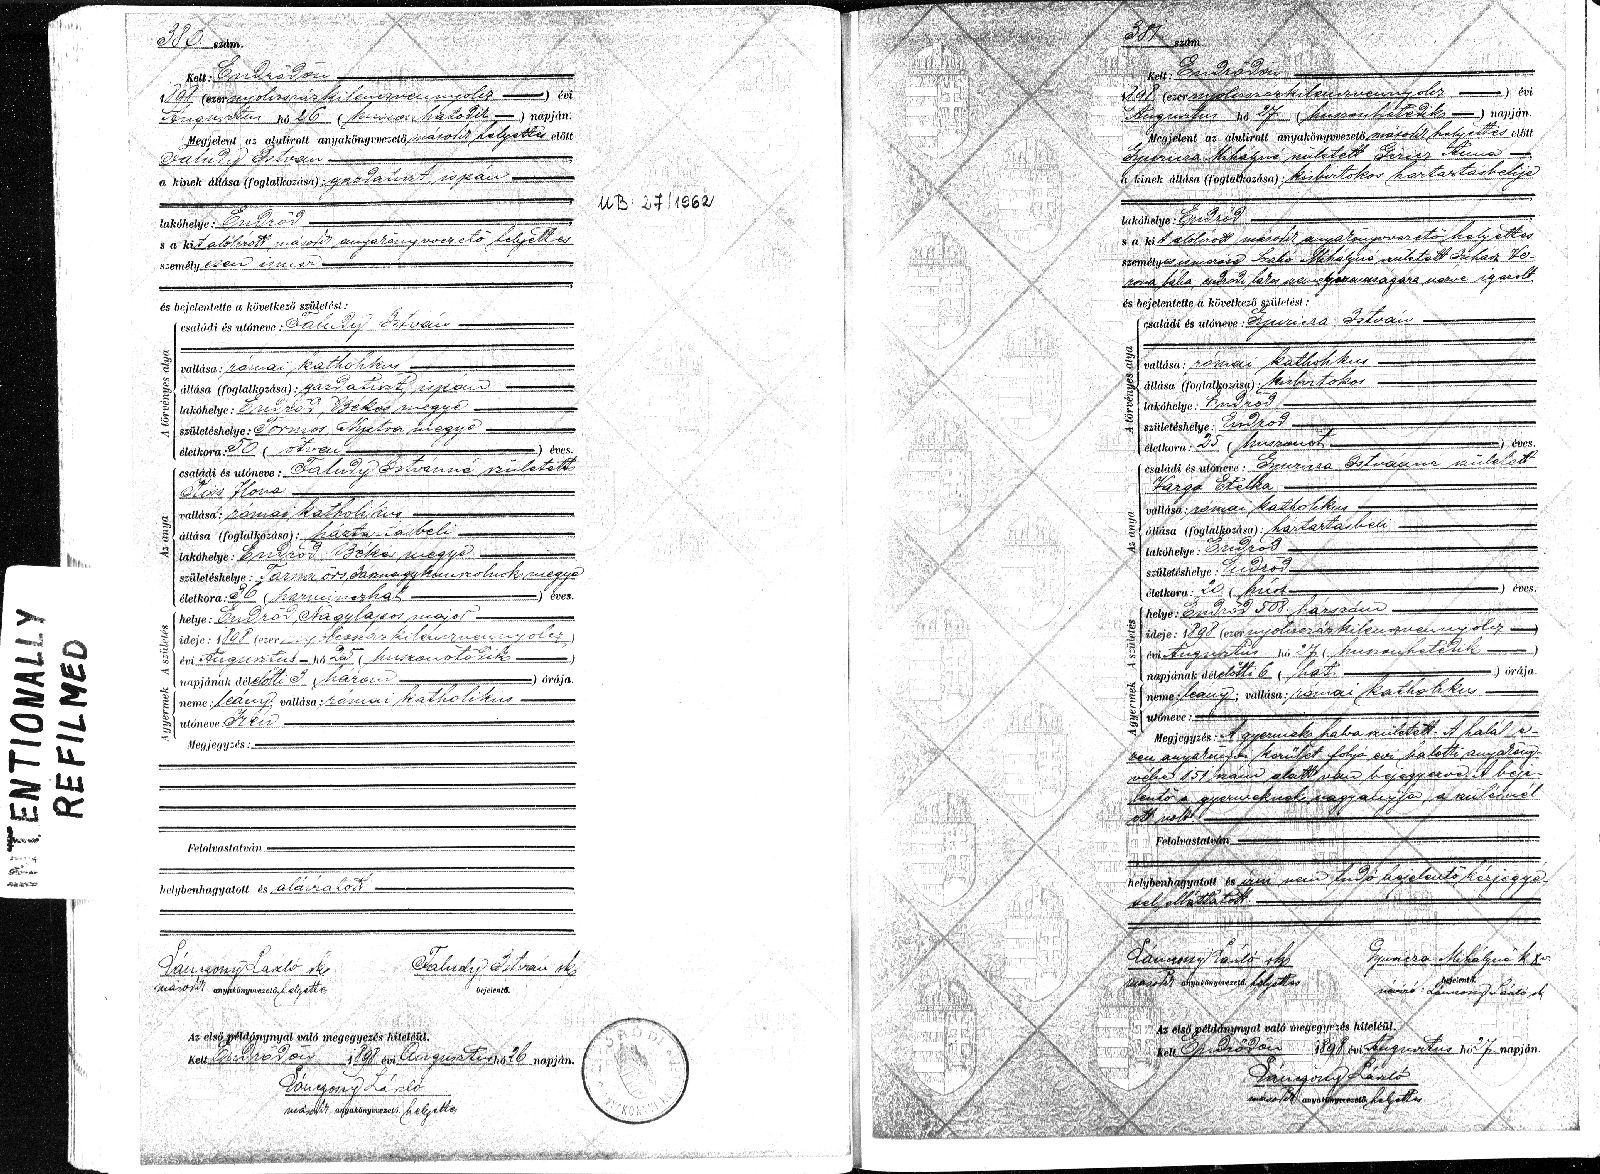 386. szám.
Kelt: Endrődön
1898 (ezer nyolcszázkilencvennyolcz) évi
Augusztus hó 26 (huszonhatodik) napján.
Megjelent az alulirott anyakönyvvezető, másodk helyettes előtt
Faludy István
a kinek állása (foglalkozása): gazdatiszt, ispán
lakóhelye: Endrőd
s a kit alólirott másodk anyakönyvvezető helyettes
személyesen ismer
és bejelentette a következő születést:
A törvényes atya
családi és utóneve: Faludy István
vallása: római katholikus
állása (foglalkozása): gazdatiszt, ispán
lakóhelye: Endrőd Békés megye
születéshelye: Tormos, Nyitra megye
életkora: 50 (ötven) éves.
Az anya
családi és utóneve: Faludy Istvánné született
Kiss Ilona
vallása: római katholikus
állása (foglalkozása): háztartásbeli
lakóhelye: Endrőd Békés megye
születéshelye: Jasznagykunszolnok megye
életkora: 36 (harminczhat) éves.
A születés
helye: Endrőd Nagylapos major
ideje: 1898 (ezer nyolcszázkilencvennyolcz)
évi Augusztus hó 25 (huszonötödik)
napjának délelőtti 3 (három) órája.
A gyermek
neme: leány; vallása: római katholikus
utóneve: Irén
Megjegyzés:
Felolvastatván
helybenhagyatott és aláiratott
Lánczony László sk.
másodk anyakönyvvezető helyettes
Faludy István sk.
bejelentő.
Az első példánynyal való megegyezés hiteléül.
Kelt Endrődön 1898 évi Augusztus hó 26 napján.
Lánczony László
másodk anyakönyvvezető helyettes
UB. 27/1962
INTENTIONALLY
REFILMED
387. szám
Kelt: Endrődön
1898 (ezer nyolcszázkilencvennyolcz) évi
Augusztus hó 27 (huszonhetedik) napján.
Megjelent az alulirott anyakönyvvezető másodk helyettes előtt
Mihályné született Anna
a kinek állása (foglalkozása): kisbirtokos háztartásbelije
lakóhelye: Endrőd
s a kit alólirott másodk anyakönyvvezető helyettes
személyes ismerőse Szabó Mihályné született
bába endrődi lakos igazolt
és bejelentette a következő születést:
A törvényes atya
családi és utóneve: István
vallása: római katholikus
állása (foglalkozása): kisbirtokos
lakóhelye: Endrőd
születéshelye: Endrőd
életkora: 25 (huszonöt) éves.
Az anya
családi és utóneve: Istvánné született
Varga Etelka
vallása: római katholikus
állása (foglalkozása): háztartásbeli
lakóhelye: Endrőd
születéshelye: Endrőd
életkora: 20 (húsz) éves.
A születés
helye: Endrőd 508 házszám
ideje: 1898 (ezer nyolcszázkilencvennyolcz)
évi Augusztus hó 27 (huszonhetedik)
napjának délelőtti 6 (hat) órája.
A gyermek
neme: leány; vallása: római katholikus
utóneve:
Megjegyzés: A gyermek halva született. A halál e-
zen anyakönyvi kerület folyó évi halotti anyaköny-
vében 151 szám alatt van bejegyezve. A beje-
lentő a gyermeknek nagyanyja, a szülésnél
ott volt.
Felolvastatván
helybenhagyatott és irni nem tudó bejelentő kézjegyé-
vel elláttatott.
Lánczony László sk.
másodk anyakönyvvezető helyettes
Mihályné k. x v.
bejelentő.
névíró: Lánczony László sk
Az első példánynyal való megegyezés hiteléül.
Kelt Endrődön 1898 évi Augusztus hó 27 napján.
Lánczony László
másodk anyakönyvvezető helyettes